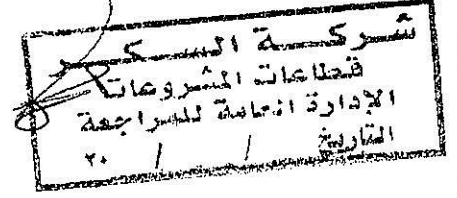 شركة السكر
قطاعات المشروعات
الإدارة العامة للمراجعة
التاريخ / / ٢٠